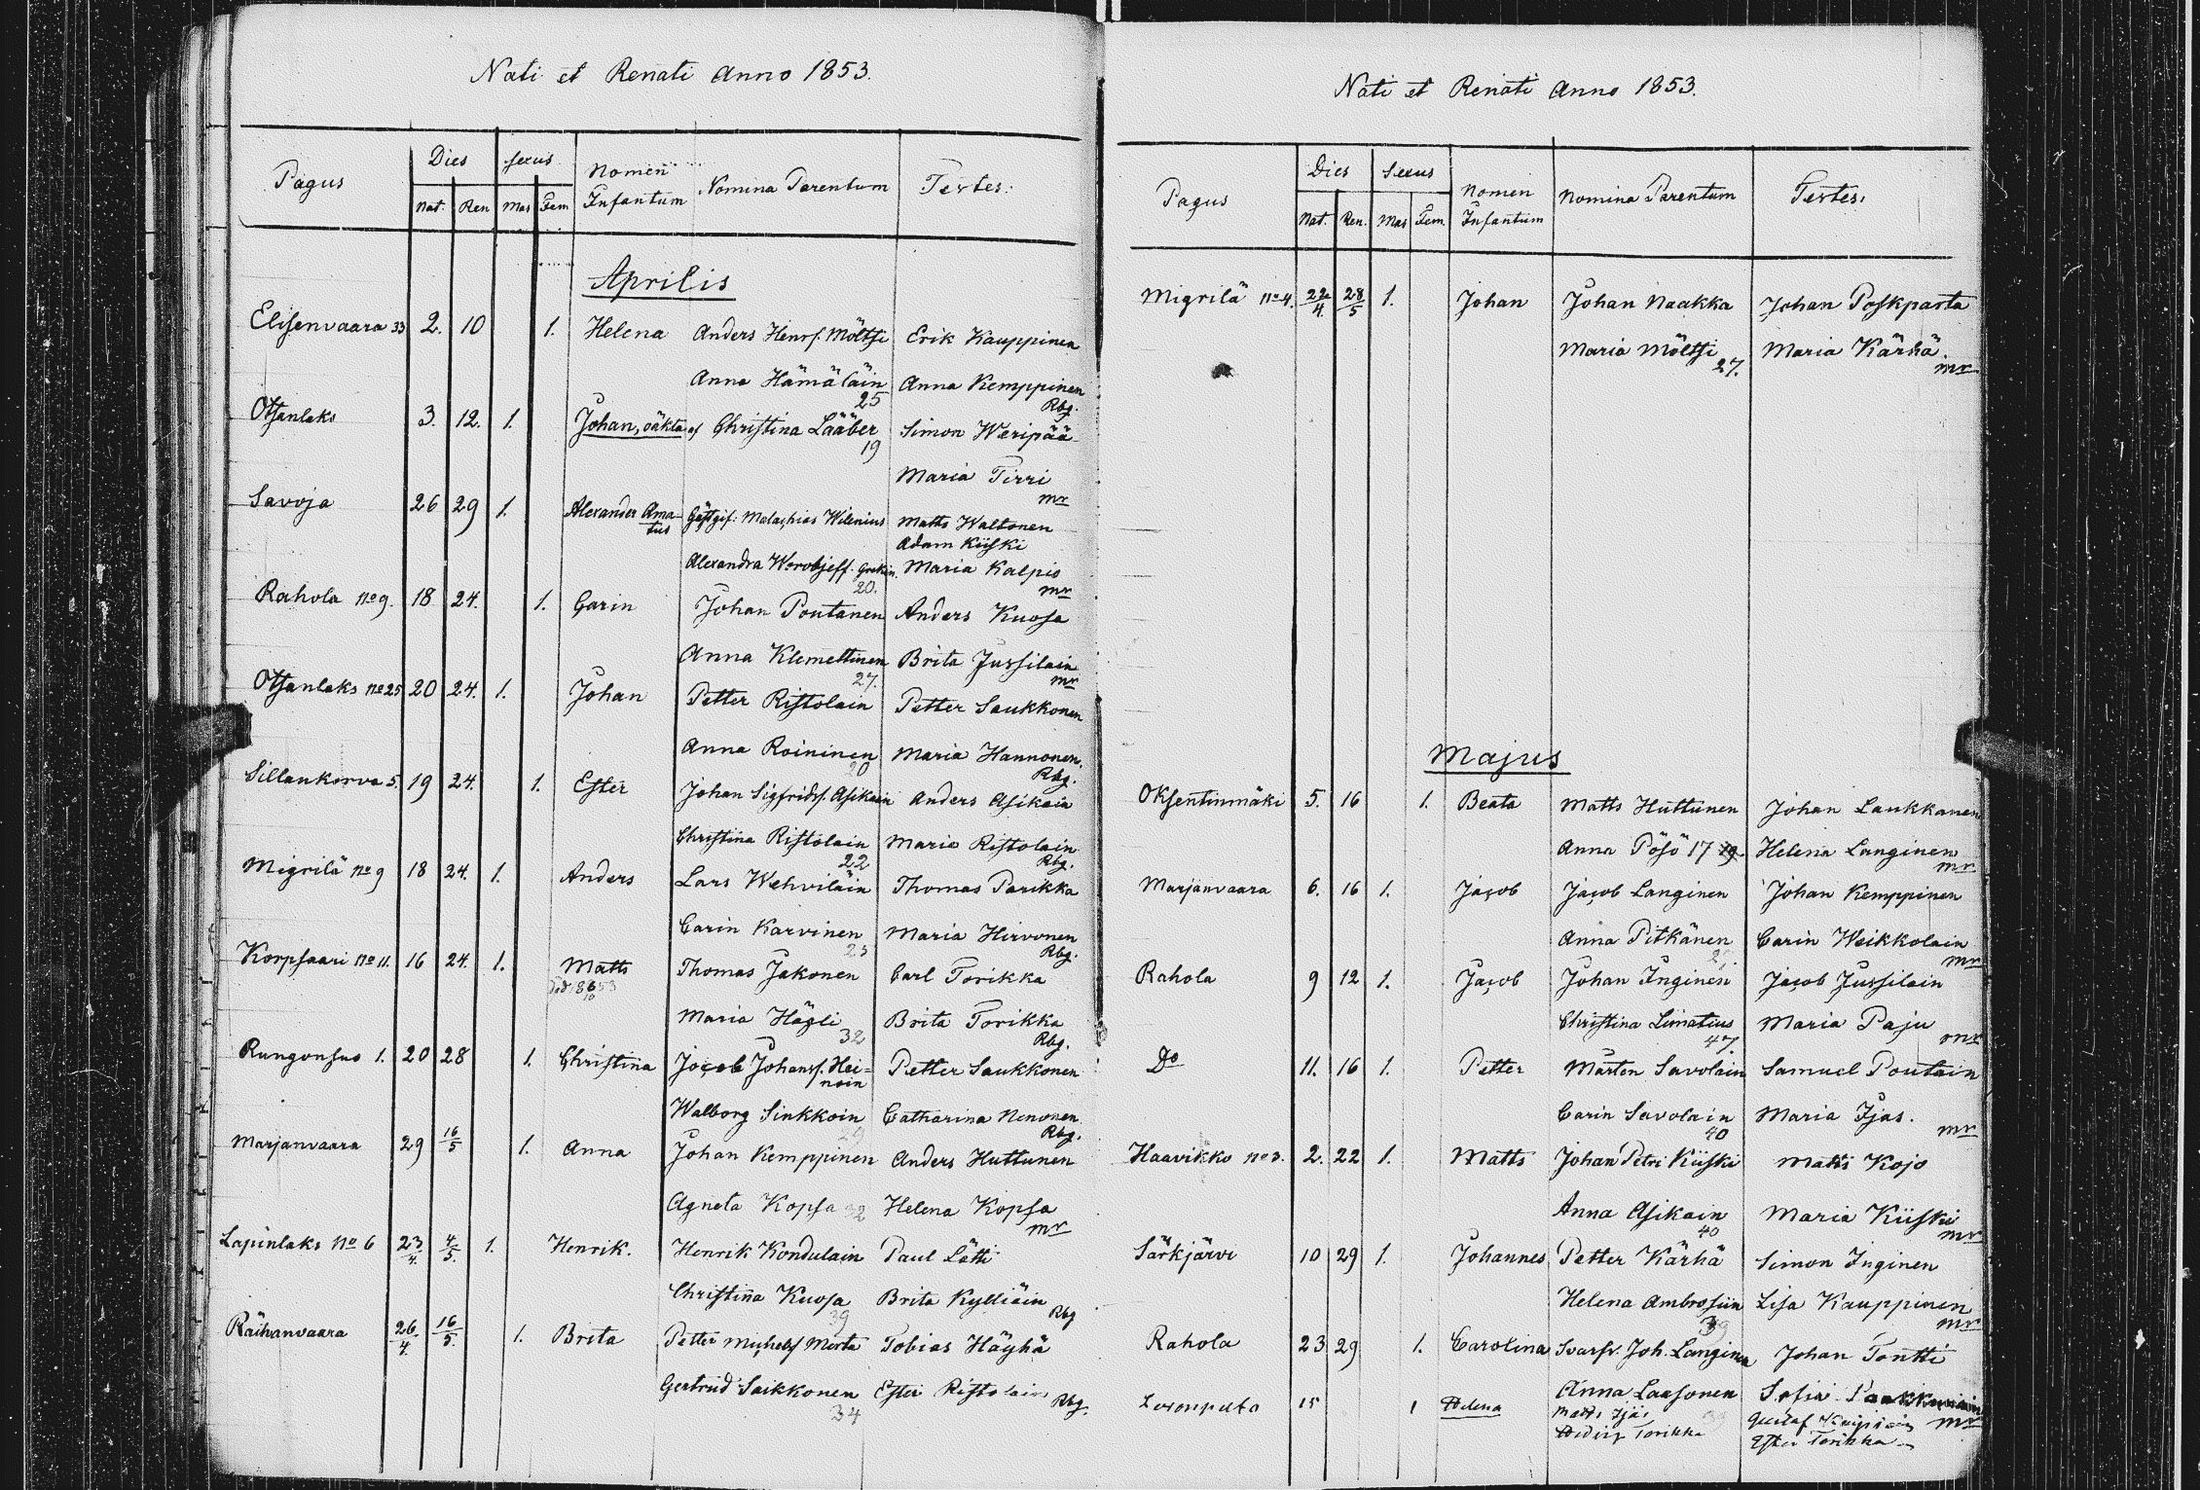 Nati et Renati Anno 1853.
Pagus Dies Sexus Nomen Infantum Nomina Parentum Testes.
Nat. Ren Mas Fem
Aprilis
Elisenvaara 33 2. 10 1. Helena Anders Henrs. Möltsi Erik Kauppinen
Anna Hämäläin 25 Anna Kemppinen Rbg.
Otsanlaks 3. 12. 1. Johan, oäkta af Christina Lääber 19 Simon Weripää
Maria Tirri mr
Savoja 26 29 1. Alexander Ama-tus Gästgif. Malachias Wilenius Matts Waltonen
Adam Kiiski
Alexandra Worobjeff. Grekin. 20. Maria Kalpio mr
Rahola No 9. 18 24. 1. Carin Johan Poutanen Anders Kuosa
Anna Klemettinen 27. Brita Jussilain mr
Otsanlaks No 25 20 24. 1. Johan Petter Ristolain Petter Saukkonen
Anna Roininen 20 Maria Hannonen. Rbg.
Sillankorva 5. 19 24. 1. Ester Johan Sigfridss. Asikain Anders Asikain
Christina Ristolain 22 Maria Ristolain Rbg.
Migrilä No 9 18 24. 1. Anders Lars Wehviläin Thomas Parikka
Carin Karvinen 25 Maria Hirvonen Rbg.
Korpsaari No 11. 16 24. 1. Matts Thomas Jakonen Carl Torikka
Maria Hägli 32 Brita Torikka Rbg.
Rungonsuo 1. 20 28 1. Christina Jacob Johanss. Hei-noin Petter Saukkonen
Walborg Sinkkoin 29 Catharina Nenonen Rbg.
Marjanvaara 29 16/5 1. Anna Johan Kemppinen Anders Huttunen
Agneta Kopsa 32 Helena Kopsa mr
Lapinlaks No 6 23/4. 4/5. 1. Henrik. Henrik Kondulain Paul Lätti
Christina Kuosa 39 Brita Kylliäin Rbg
Räihanvaara 26/4. 16/5. 1. Brita Petter Michelss Morta Tobias Häyhä
Gertrud Saikkonen 34 Ester Ristolain Rbg.
Nati et Renati Anno 1853.
Pagus Dies Sexus Nomen Infantum Nomina Parentum Testes.
Nat. Ren. Mas Fem.
Migrilä No 4. 22/4. 28/5 1. Johan Johan Naakka Johan Poskparta
Maria Möltsi 27. Maria Kärhä. mr
Majus
Oksentinmäki 5. 16 1. Beata Matts Huttunen Johan Laukkanen
Anna Pösö 17 Helena Langinen mr
Marjanvaara 6. 16 1. Jacob Jacob Langinen Johan Kemppinen
Anna Pitkänen Carin Weikkolain mr
Rahola 9 12 1. Jacob Johan Inginen Jacob Jussilain
Christina Limatius 47 Maria Paju mr
Do 11. 16 1. Petter Mårten Savolain Samuel Poutain
Carin Savolain 40 Maria Ijas. mr
Haavikko No 3. 2. 22 1. Matts Johan Petri Kiiski Matts Kojo
Anna Asikain 40 Maria Kiiski mr
Särkjärvi 10 29 1. Johannes Petter Kärhä Simon Inginen
Helena Ambrosiin 39 Lisa Kauppinen mr
Rahola 23 29 1. Carolina Svarfv. Joh. Langinen Johan Tontti
Anna Laasonen Sofia mr
15 1 Helena Matts Ijäs Gustaf
Hedvig Torikka Ester Torikka